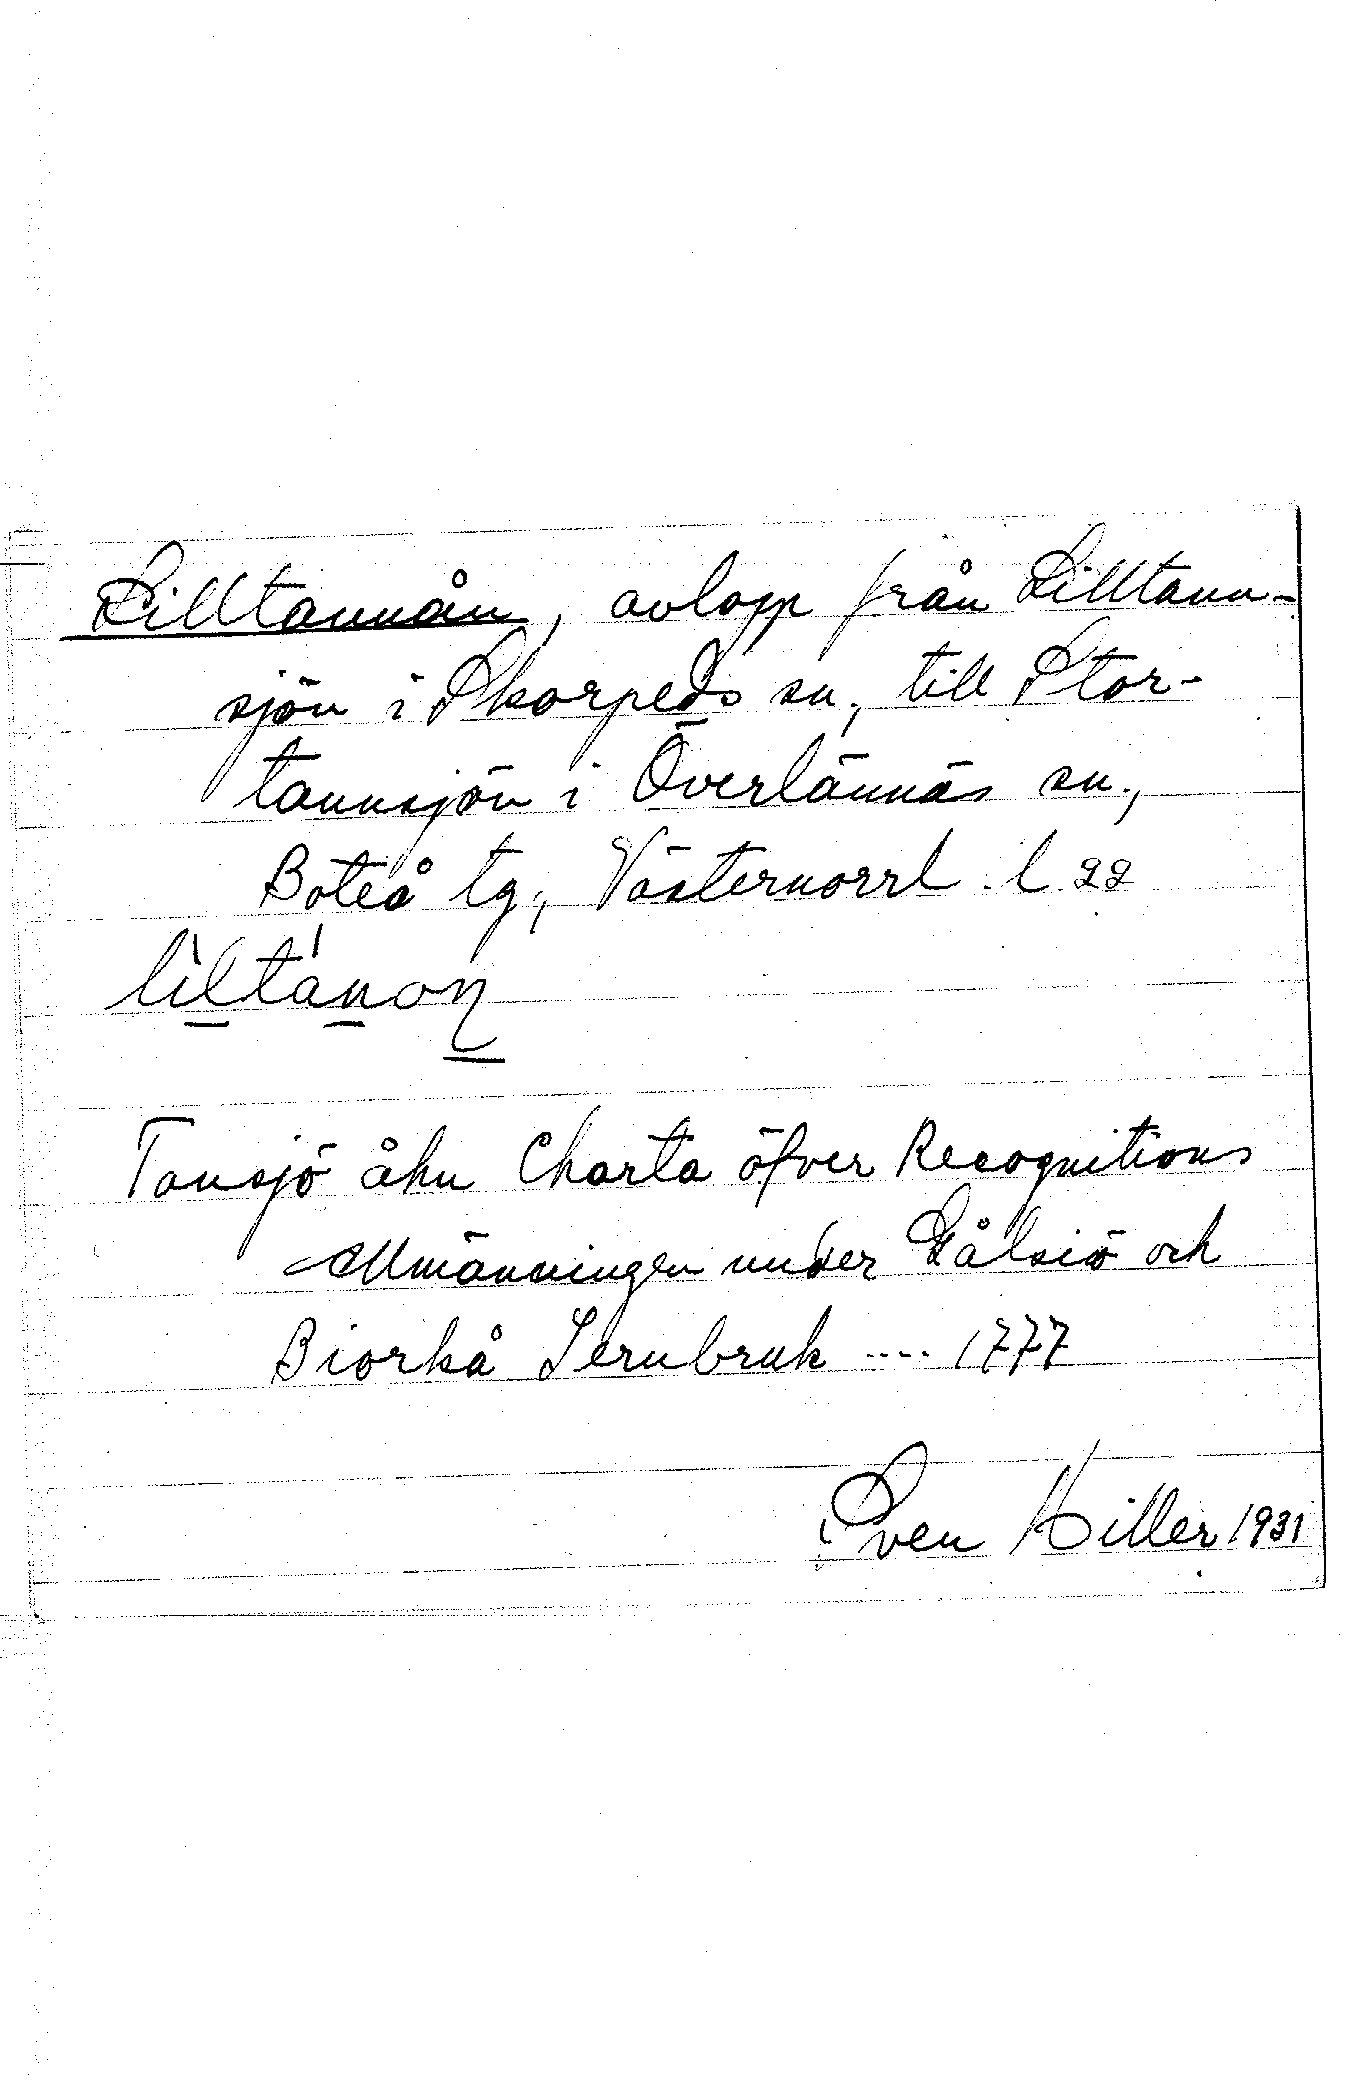 Lilltannån, avlopp från Lilltann-
sjön i Skorpeds sn., till Stor-
tannsjön i Överlännäs sn.,
Boteå tg, Västernorrl. l
lìltánoɳ
Tansjö åhn Charta öfver Recognitions
Allmänningen under Gålsiö och
Biorkå Jernbruk .... 1777
Sven Hiller 1931